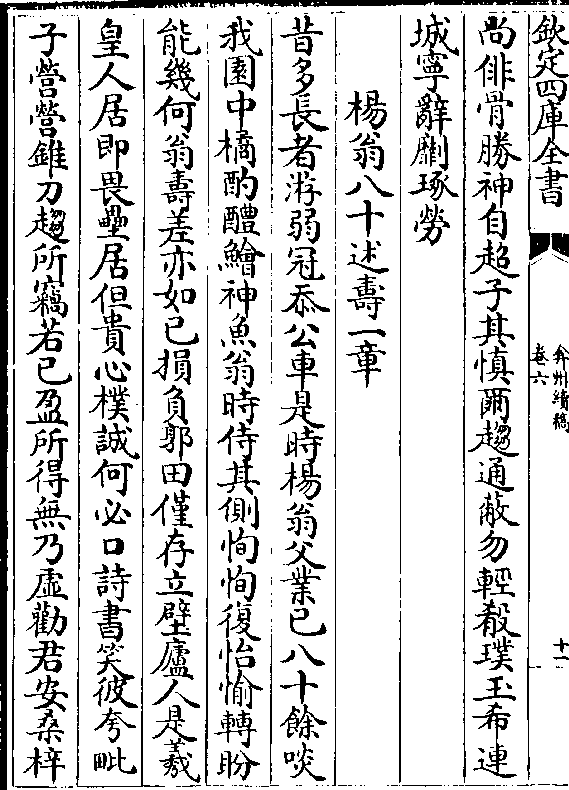 欽定四庫全書
弇州續稿
卷六
十一
尚俳骨勝神自超子其慎爾趨通蔽勿輕殽璞玉希連
城寧辭劘琢勞
楊翁八十述壽一章
昔多長者游弱冠忝公車是時楊翁父業已八十餘啖
我園中橘酌醴鱠神魚翁時侍其側恂恂復怡愉轉盼
能幾何翁壽差亦如已損負郭田僅存立壁廬人是羲
皇人居即畏壘居但貴心樸誠何必口詩書笑彼夸毗
子營營錐刀趨所竊若已盈所得無乃虛勸君安桑梓